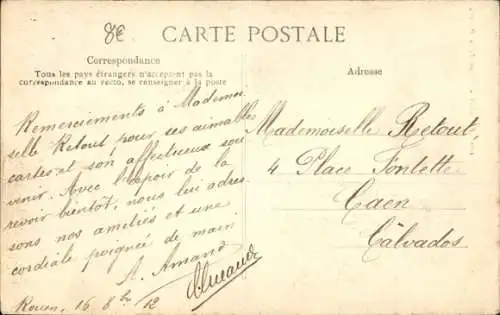 8€
CARTE POSTALE
Correspondance
Tous les pays étrangers n'acceptent pas la
correspondance au recto, se renseigner à la poste
Adresse
Remerciements à Mademoi
selle Retout pour ses aimables
cartes et son affectueux sou
venir. Avec l'espoir de la
revoir bientôt, nous lui adres
sons nos amitiés et une
cordiale poignée de main
A. Amand
Rouen, 16 8bre 12
Mademoiselle Retout,
4 Place Fontette
Caen
Calvados